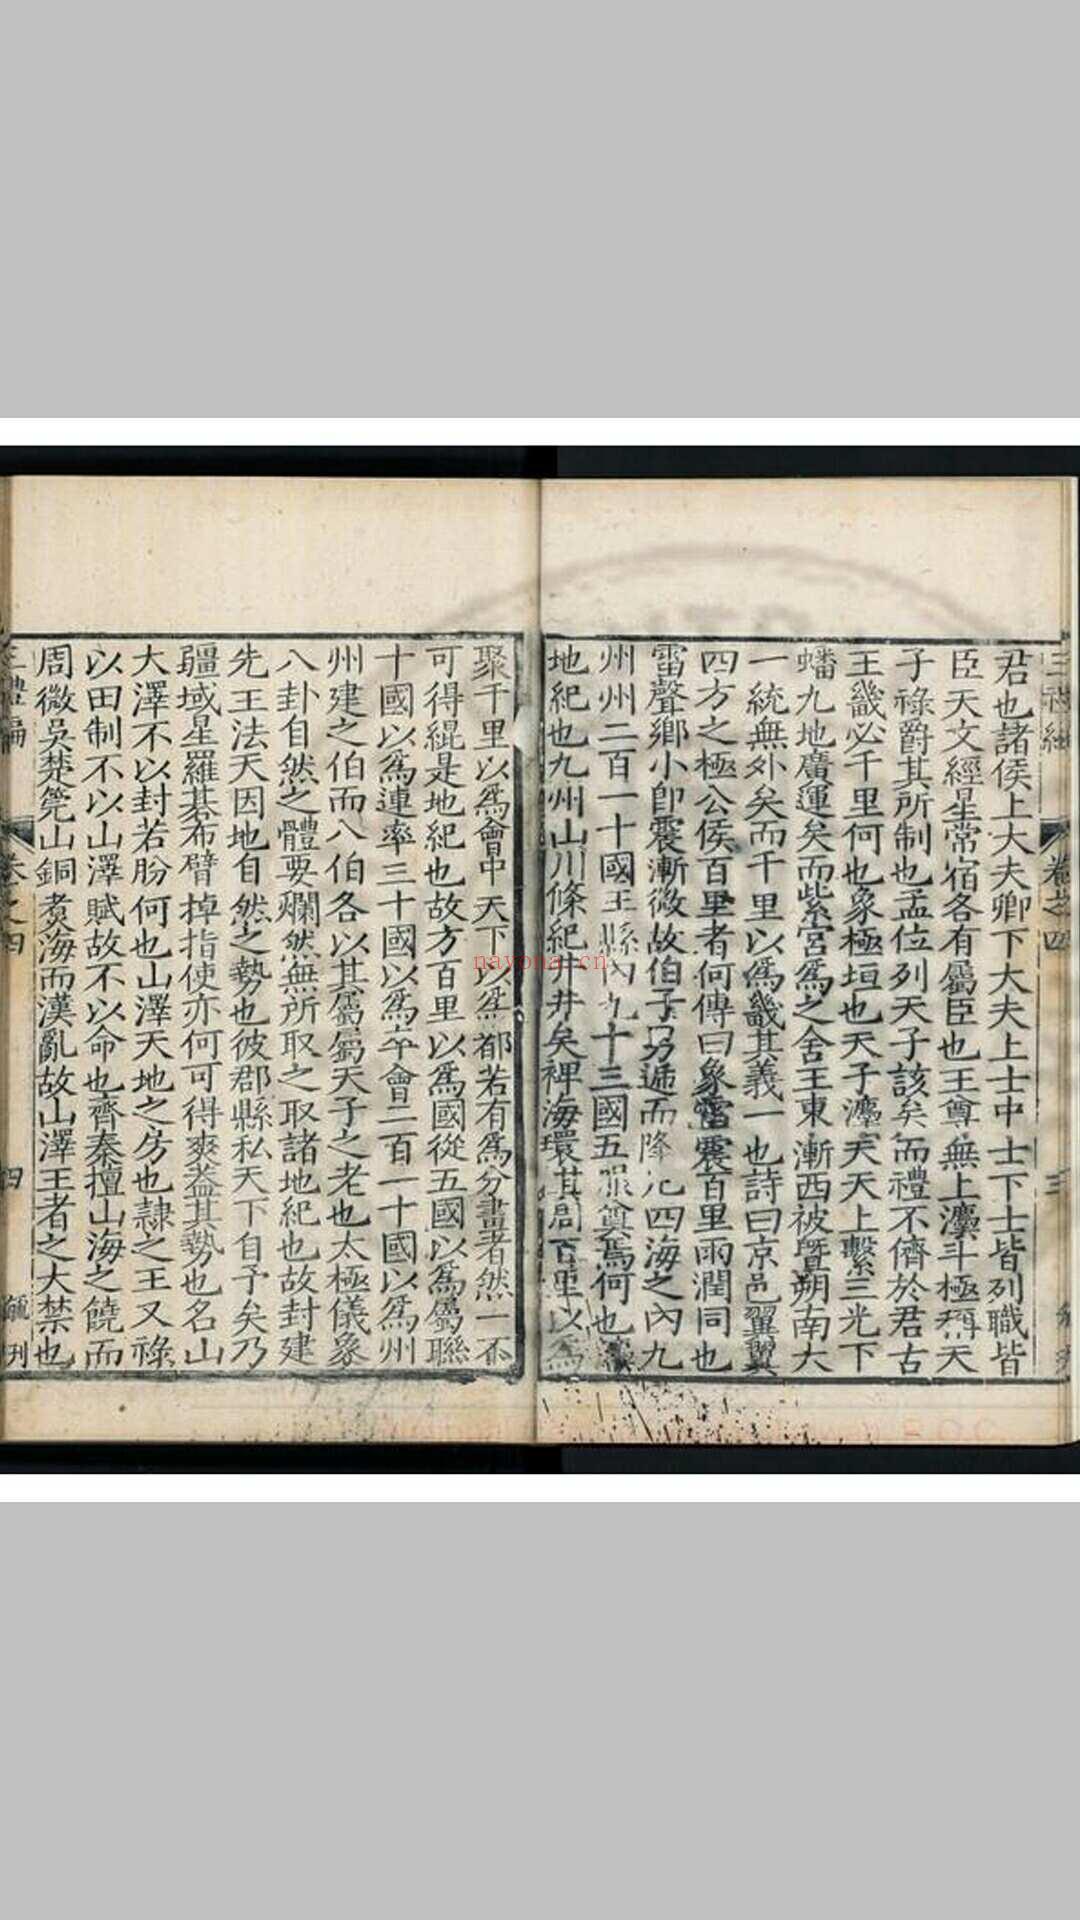 君也諸侯上大夫卿下大夫上士中士下士皆列職皆
臣天文經星常宿各有屬臣也王尊無上灋斗極稱天
子祿爵其所制也孟位列天子該矣而禮不儕於君古
王畿必千里何也象極垣也天子灋天天上繫三光下
蟠九地廣運矣而紫宮爲之舍王東漸西被暨朔南大
一統無外矣而千里以爲畿其義一也詩曰京邑翼翼
四方之極公侯百里者何傳曰象雷震百里雨潤同也
雷聲鄉小卽震漸微故伯子男遞而降凡四海之內九
州州二百一十國王縣內九十三國五服奠焉何也灋
地紀也九州山川條紀井井矣裨海環其周百里以爲
聚千里以爲會中天下以爲都若有爲分畫者然一不
可得緄是地紀也故方百里以爲國從五國以爲屬聯
十國以爲連率三十國以爲卒會二百一十國以爲州
州建之伯而八伯各以其屬屬天子之老也太極儀象
八卦自然之體要爛然無所取之取諸地紀也故封建
先王法天因地自然之勢也彼郡縣私天下自予矣乃
疆域星羅棊布臂掉指使亦何可得爽葢其勢也名山
大澤不以封若朌何也山澤天地之房也隷之王又祿
以田制不以山澤賦故不以命也齊秦擅山海之饒而
周微吳楚筦山銅煑海而漢亂故山澤王者之大禁也
三禮編
卷之四
四
nayona.cn